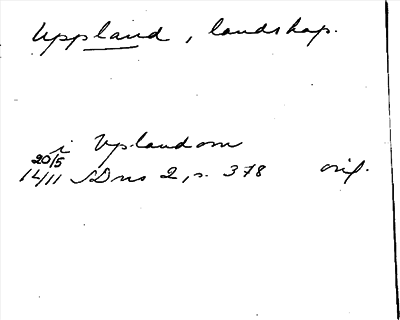 Uppland, landskap.
i Uplandom
20/5
1411 SDns 2, s. 378 orig.